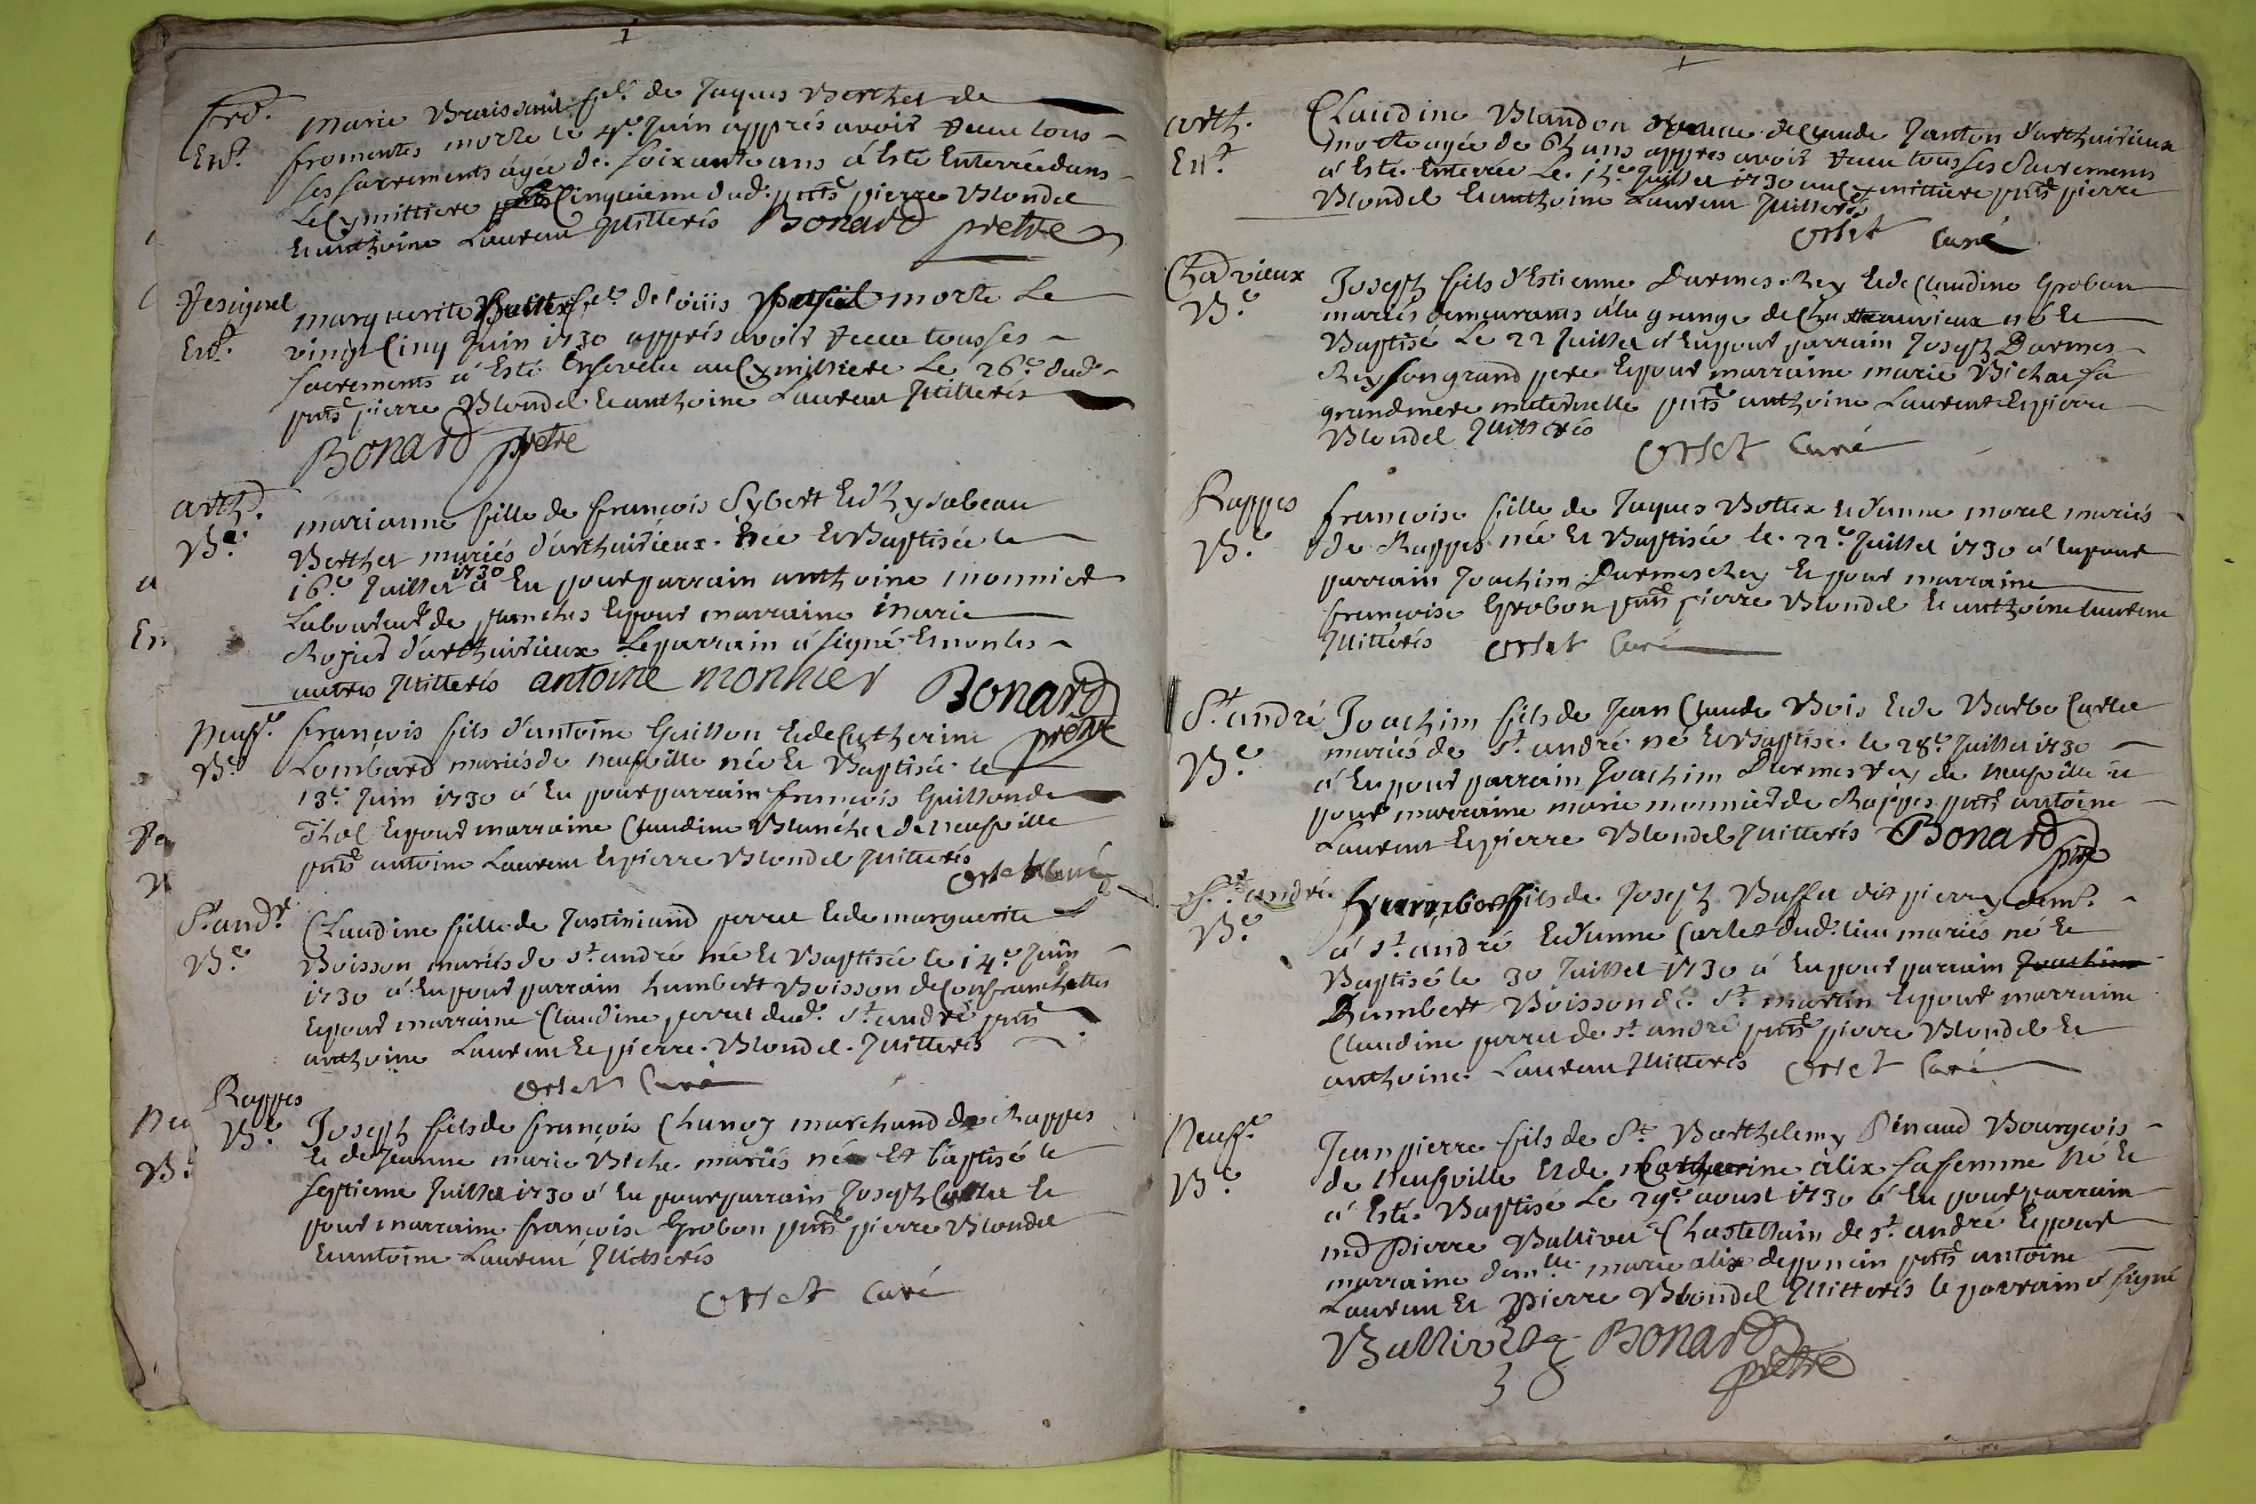 frd.
Ent.
marie Braissaud fe. de Jaques Berthet de
fromentes morte le 4e. Juin appres avoir Receu tous
ses sacrements agée de soixante ans á Esté Enterrée dans
Le Cymittiere Cinquieme dud. pnts pierre Blondel
Et anthoine Laurent Jllitterés Bonard pretre
Resignel
Ent.
marguerite fe. de loüis morte Le
vingt Cinq Juin 1730 apprés avoir Receu tous ses
sacrements á Esté Ensevelie au Cymittiere Le 26e. dud.
pnts pierre Blondel Et anthoine Laurent Jllitterés
Bonard pretre
arth.
Be.
marianne fille de françois Sybert Et d'Hysabeau
Berthet mariés d'arthuirieux née Et Baptisée le
16e. Juillet 1730 á Eu pour parrain anthoine monnier
Laboureur de planches Et pour marraine marie
Rojier d'arthuirieux Le parrain á signé Et non les
autres Jllitterés antoine monnier Bonard
pretre
Neuf.e
Be.
françois fils d'antoine Guillon Et de Catherine
Lombard mariés de neufville née Et Baptisée le
13e. Juin 1730 á Eu pour parrain françois Guillon de
Thol Et pour marraine Claudine Blanchet de neufville
pnts antoine Laurent Et pierre Blondel Jllitterés
Orset Curé
St. andr.
Be.
Claudine fille de Justiniand perret Et de marguerite
Boisson mariés de St. andré née Et Baptisée le 14e. Juin
1730 á Eu pour parrain humbert Boisson de Confranchettes
Et pour marraine Claudine perret dud. St. andré pnts
anthoine Laurent Et pierre Blondel Jllitterés
Orset Curé
Rappes
Be.
Joseph fils de françois Chanoz marchand de Rappes
Et de Jeanne marie Biche mariés né Et baptisé le
septieme Juillet 1730 á Eu pour parrain Joseph Et
pour marraine françoise Grobon pnts pierre Blondel
Et antoine Laurent Jllitterés
Orset Curé
arth.
Ent.
Claudine Blandon de Claude Janton d'arthuirieux
morte agée de ans appres avoir Receu tous ses Sacrements
á Esté Enterrée Le Juillet 1730 au Cymittiere pnts pierre
Blondel Et anthoine Laurent Jllitterés
Orset Curé
Cha vieux
Be.
Joseph fils d'Estienne Darmes Rey Et de Claudine Grobon
mariés demeurants á la grange de Chateauvieux né Et
Baptisé Le 22 Juillet á Eu pour parrain Joseph Darmes
Rey son grand pere Et pour marraine marie Bichat sa
grandmere maternelle pnts anthoine Laurent Et pierre
Blondel Jllitterés
Orset Curé
Rappes
Be.
françoise fille de Jaques Bottex Et d'anne morel mariés
de Rappes née Et Baptisée le 22e. Juillet 1730 á Eu pour
parrain Joachim Darmeschey Et pour marraine
françoise Grobon pnts pierre Blondel Et anthoine Laurent
Jllitterés Orset Curé
St. andré
Be.
Joachim fils de Jean Claude Bois Et de Barbe Carlet
mariés de St. andré né Et Baptisé le 28e. Juillet 1730
á Eu pour parrain Joachim Darmes Rey de neufville et
pour marraine marie monnier de Rappes pnts antoine
Laurent Et pierre Blondel Jllitterés Bonard
ptre
St. andré
Be.
fils de Joseph Buffet dit pierry demt.
á St. andré Et d'anne Carlet dud. lieu mariés né Et
Baptisé le 30 Juillet 1730 á Eu pour parrain Joachim
Humbert Boisson de St. martin Et pour marraine
Claudine perret de St. andré pnts pierre Blondel Et
anthoine Laurent Jllitterés Orset Curé
Neuf.e
Be.
Jean pierre fils de Sr. Barthelemy Binaud Bourgeois
de neufville Et de Catherine alix sa femme Né Et
á Esté Baptisé Le 29e. aoust 1730 á Eu pour parrain
md pierre Ballivet Chastellain de St. andré Et pour
marraine dem.lle marie alix de poncin pnts antoine
Laurent Et pierre Blondel Jllitterés le parrain á signé
Ballivet Bonard
pretre